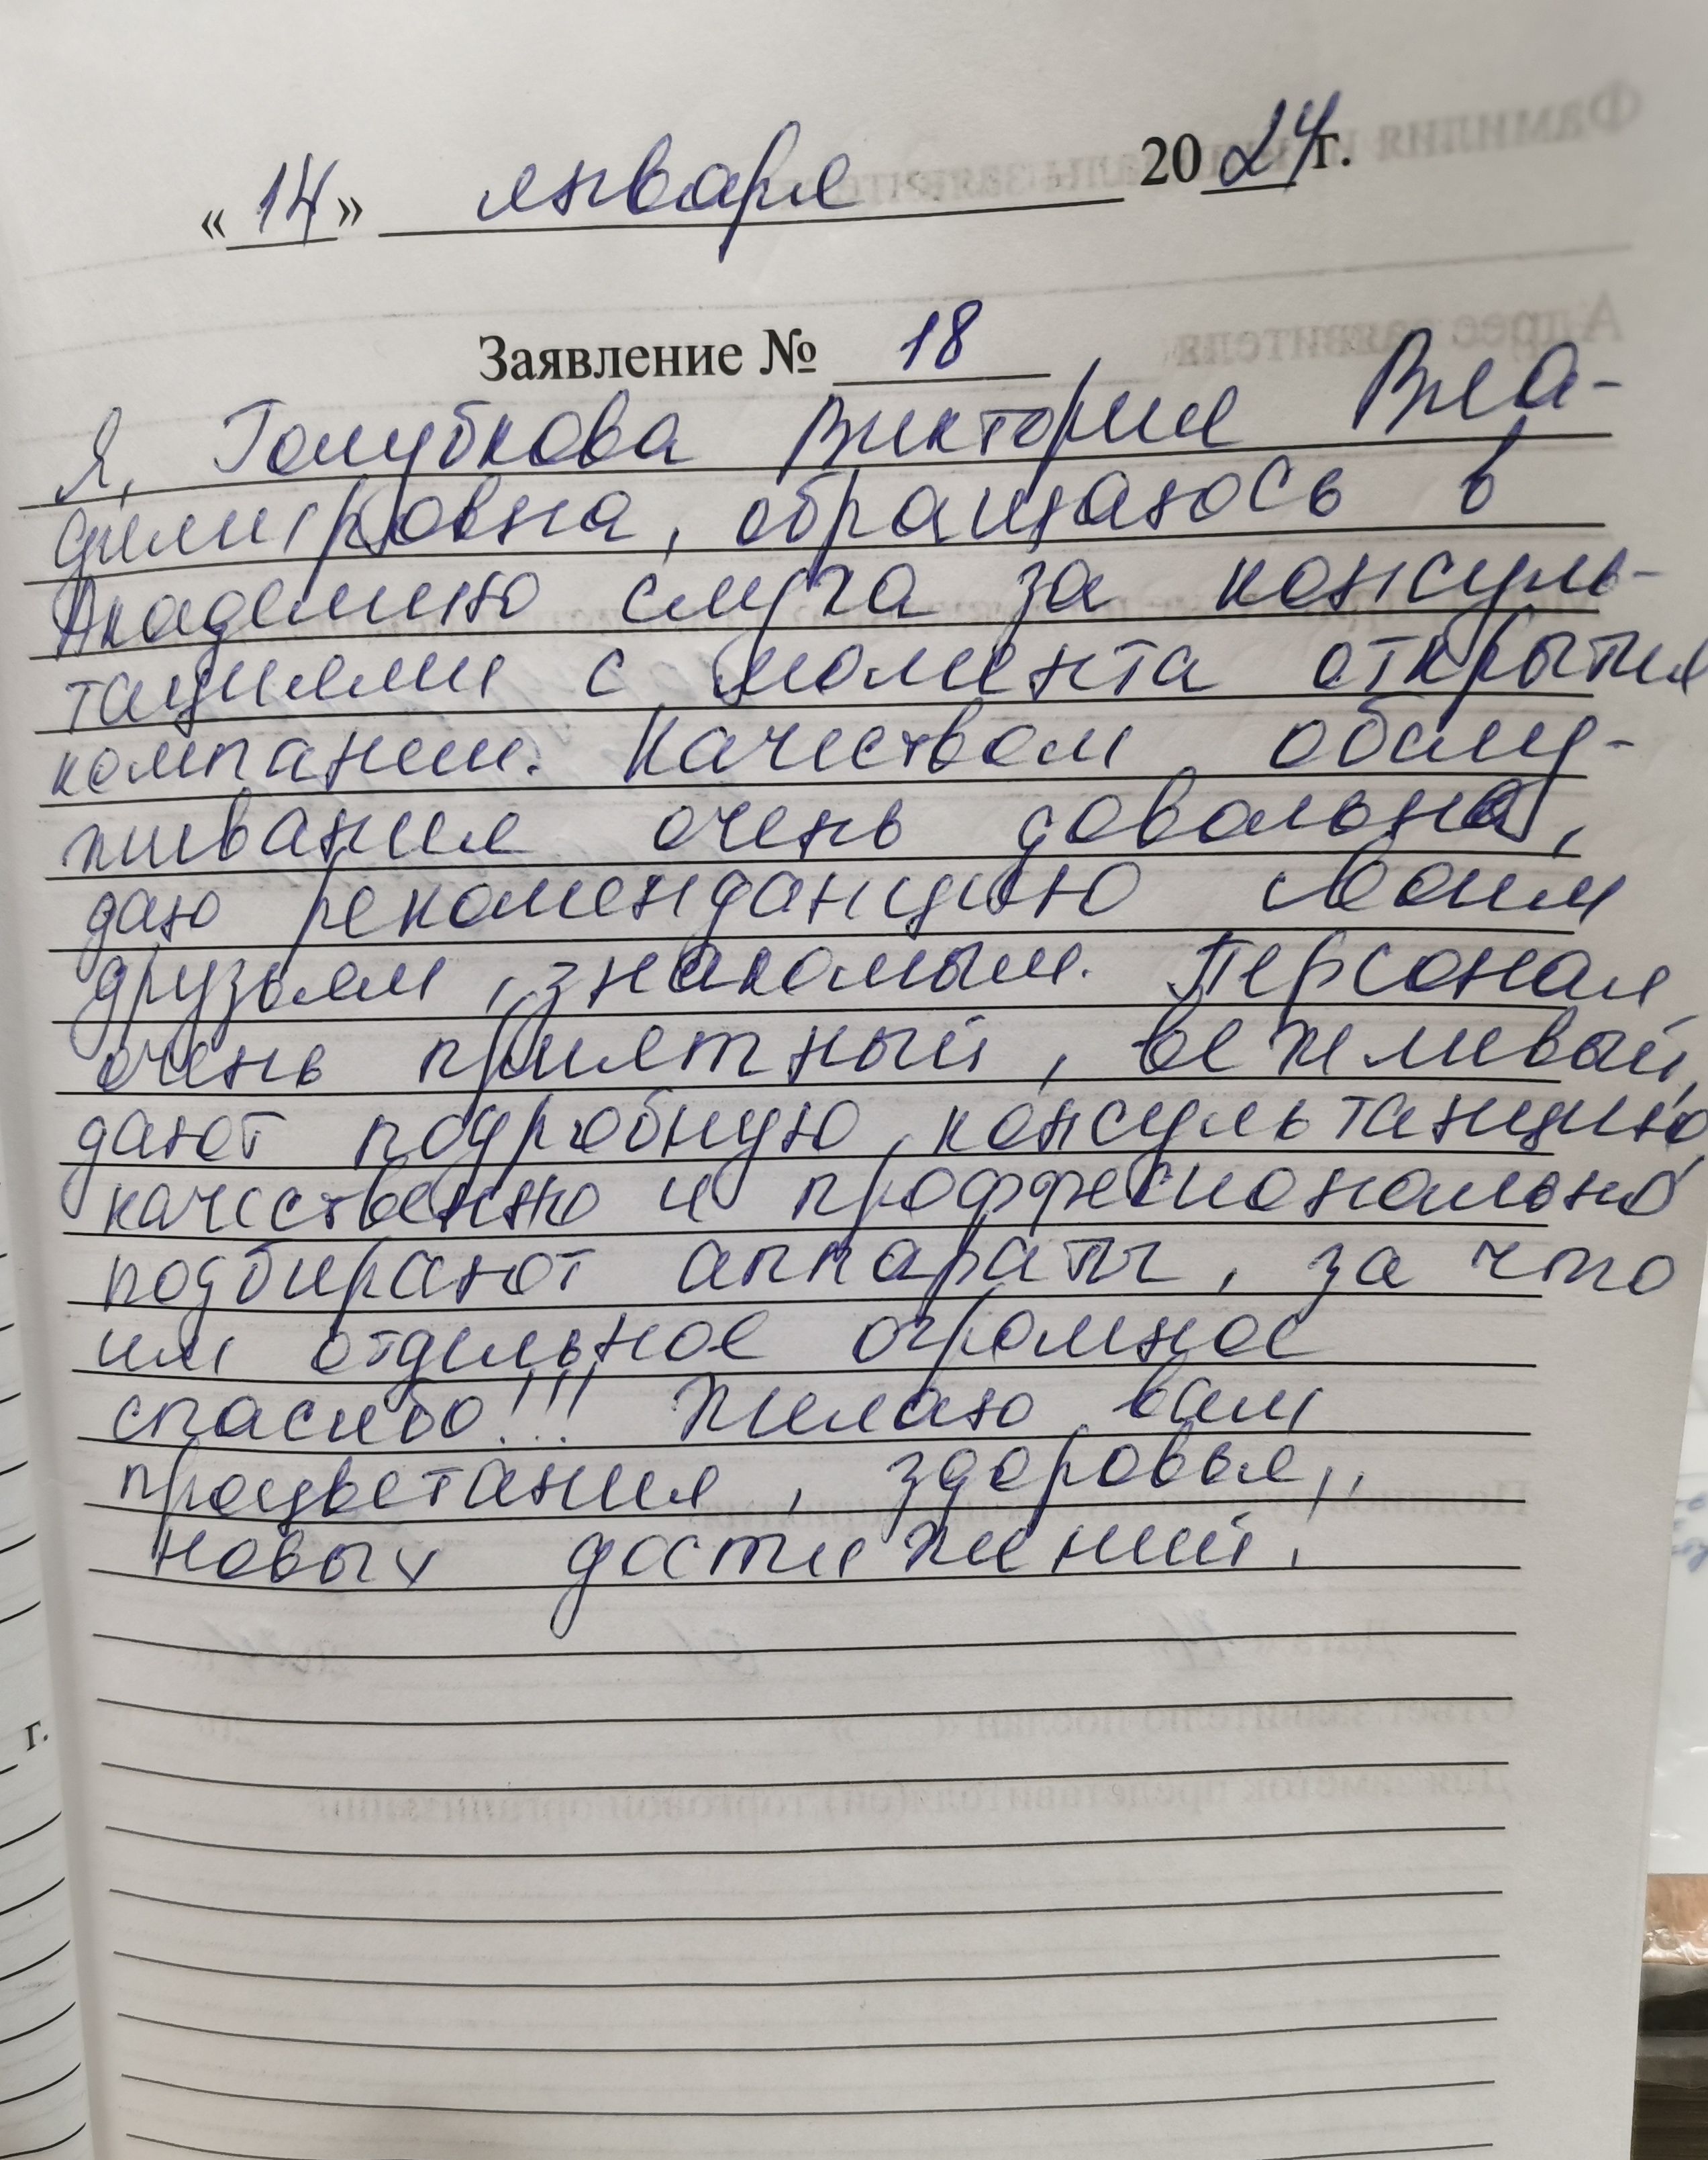 «14» января 2024г.
Заявление № 18
Я, Голубкова Виктория Вла-
димировна, обращаюсь в
Академию слуха за консуль-
тациями с момента открытия
компании. Качеством обслу-
живания очень довольна,
даю рекомендацию своим
друзьям, знакомым. Персонал
очень приятный, вежливый,
дают подробную консультанцию,
качественно и проффесионально
подбирают аппараты, за что
им отдельное огромное
спасибо!!! Желаю вам
процветания, здоровья,,
новых достижений.
г.